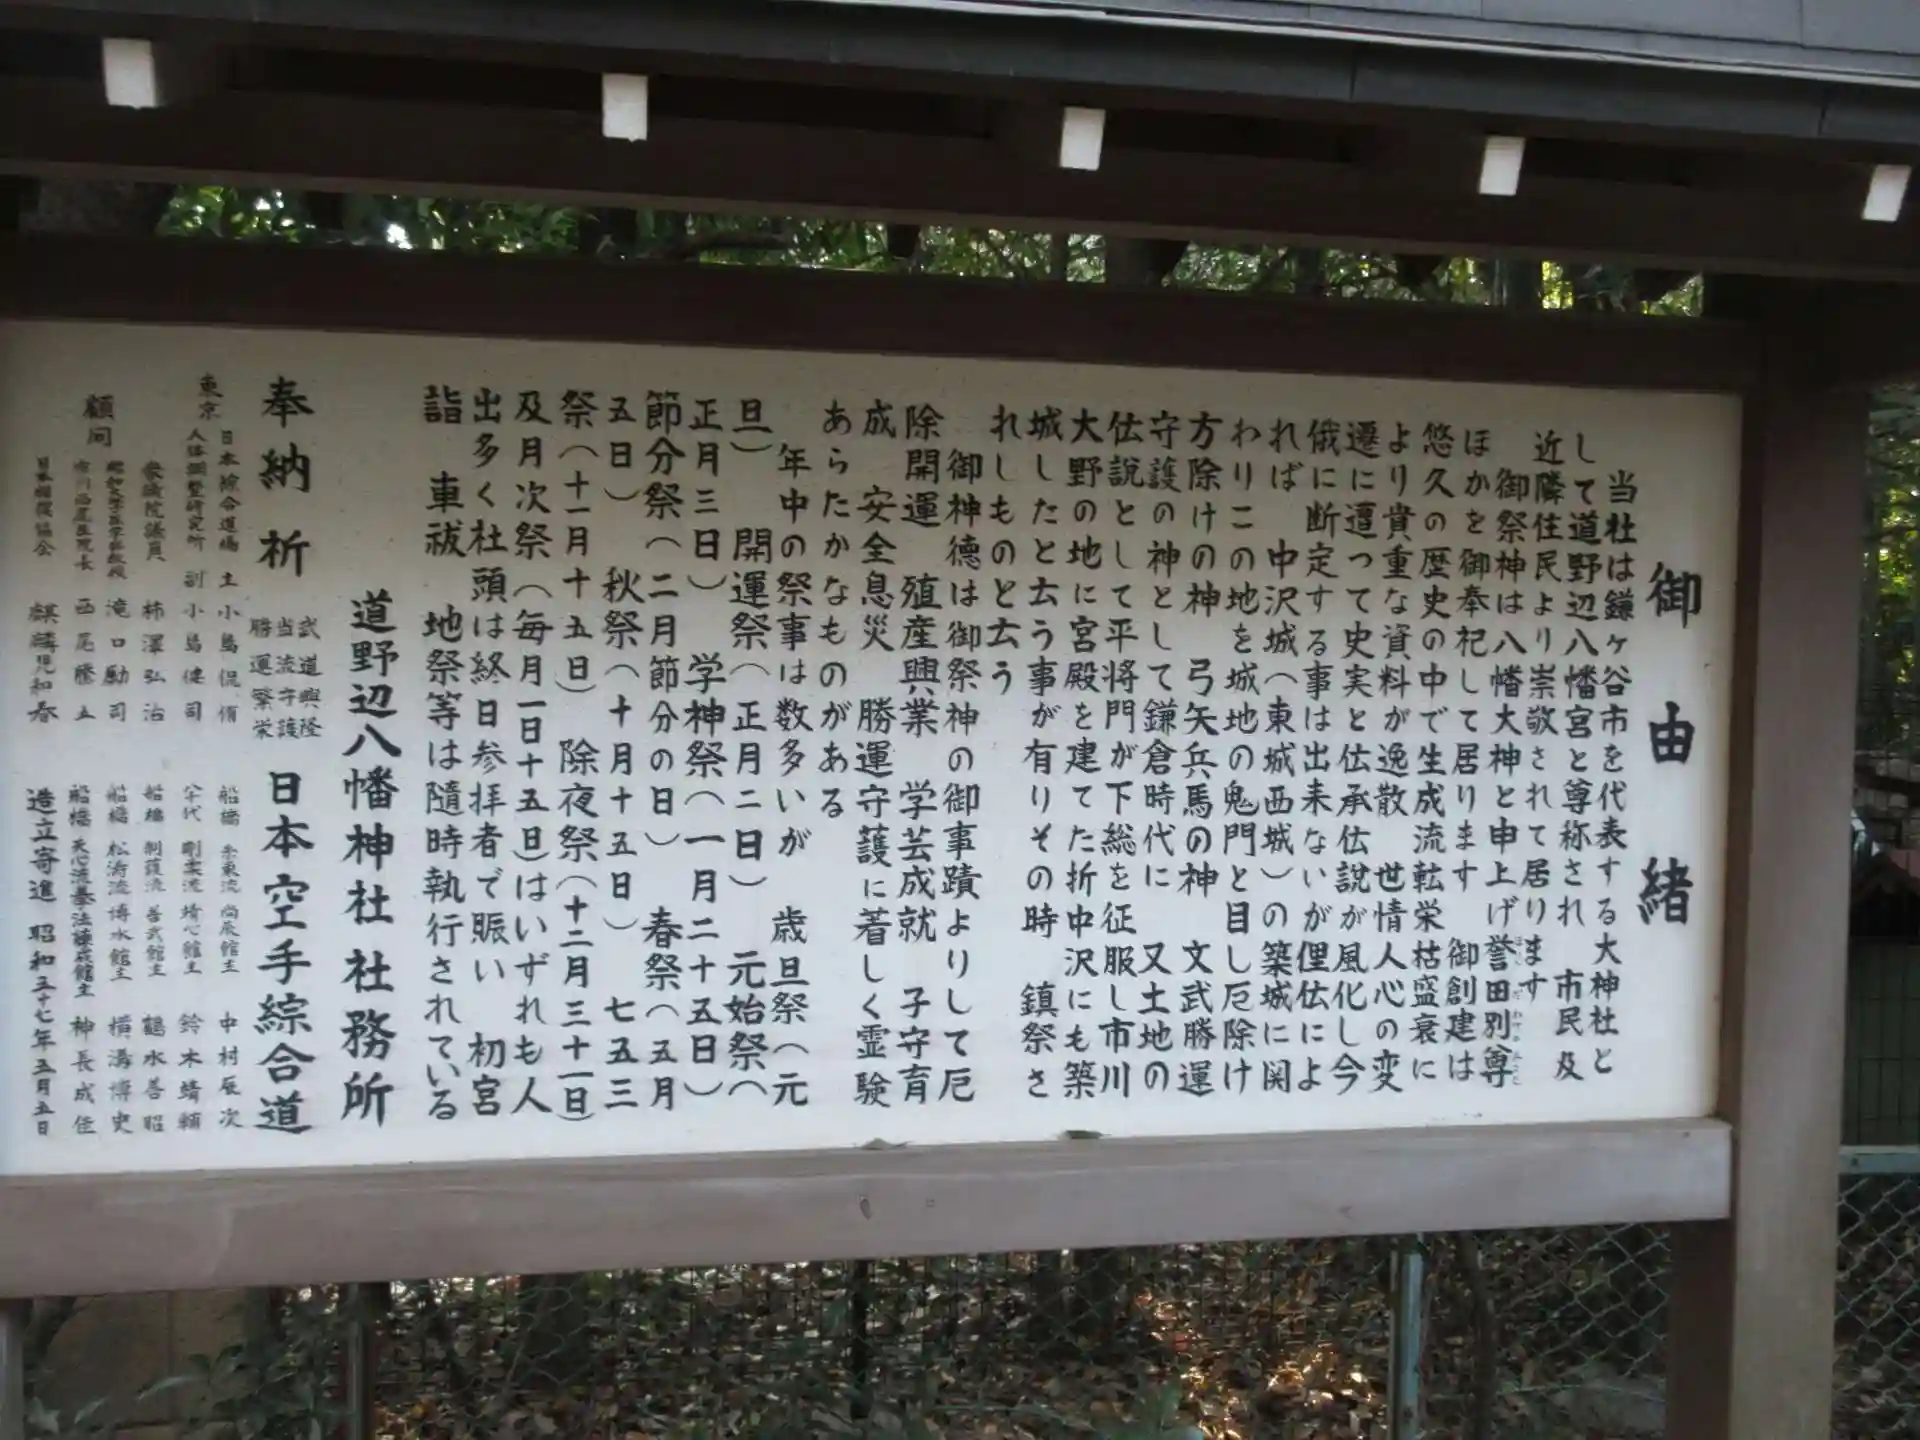 御由緒
当社は鎌ヶ谷市を代表する大神社と
して道野辺八幡宮と尊称され　市民及
近隣住民より崇敬されて居ります
御祭神は八幡大神と申上げ誉田別尊
ほかを御奉祀して居ります　御創建は
悠久の歴史の中で生成流転栄枯盛衰に
より貴重な資料が逸散　世情人心の変
遷に遭つて史実と伝承伝説が風化し今
俄に断定する事は出来ないが俚伝によ
れば　中沢城（東城西城）の築城に関
わりこの地を城地の鬼門と目し厄除け
方除けの神　弓矢兵馬の神　文武勝運
守護の神として鎌倉時代に　又土地の
伝説として平将門が下総を征服し市川
大野の地に宮殿を建てた折中沢にも築
城したと云う事が有りその時　鎮祭さ
れしものと云う
御神徳は御祭神の御事蹟よりして厄
除開運　殖産興業　学芸成就　子守育
成　安全息災　勝運守護に著しく霊験
あらたかなものがある
年中の祭事は数多いが　歳旦祭（元
旦）　開運祭（正月二日）　元始祭（
正月三日）　学神祭（一月二十五日）
節分祭（二月節分の日）　春祭（五月
五日）　秋祭（十月十五日）　七五三
祭（十一月十五日）除夜祭（十二月三十一日）
及月次祭（毎月一日十五日）はいずれも人
出多く社頭は終日参拝者で賑い　初宮
詣　車祓　地祭等は隨時執行されている
道野辺八幡神社社務所
奉納　祈　武道興隆
当流守護
勝運繁栄　日本空手綜合道
東京　日本綜合道場　主　小島　侃侑　船橋　糸東流　尚辰館主　中村辰次
人体調整研究所　副　小島健司　八千代　剛柔流　靖心館主　鈴木靖頼
顧問　衆議院議員　柿澤弘治　船橋　制護流　善武館主　鶴水善昭
滝口勵司　船橋　松涛流　博水館主　横溝博史
西尾　船橋　天心流拳法錬成館主　神長成佳
日本相撲協会　麒麟児和春　造立寄進　昭和五十七年五月五日